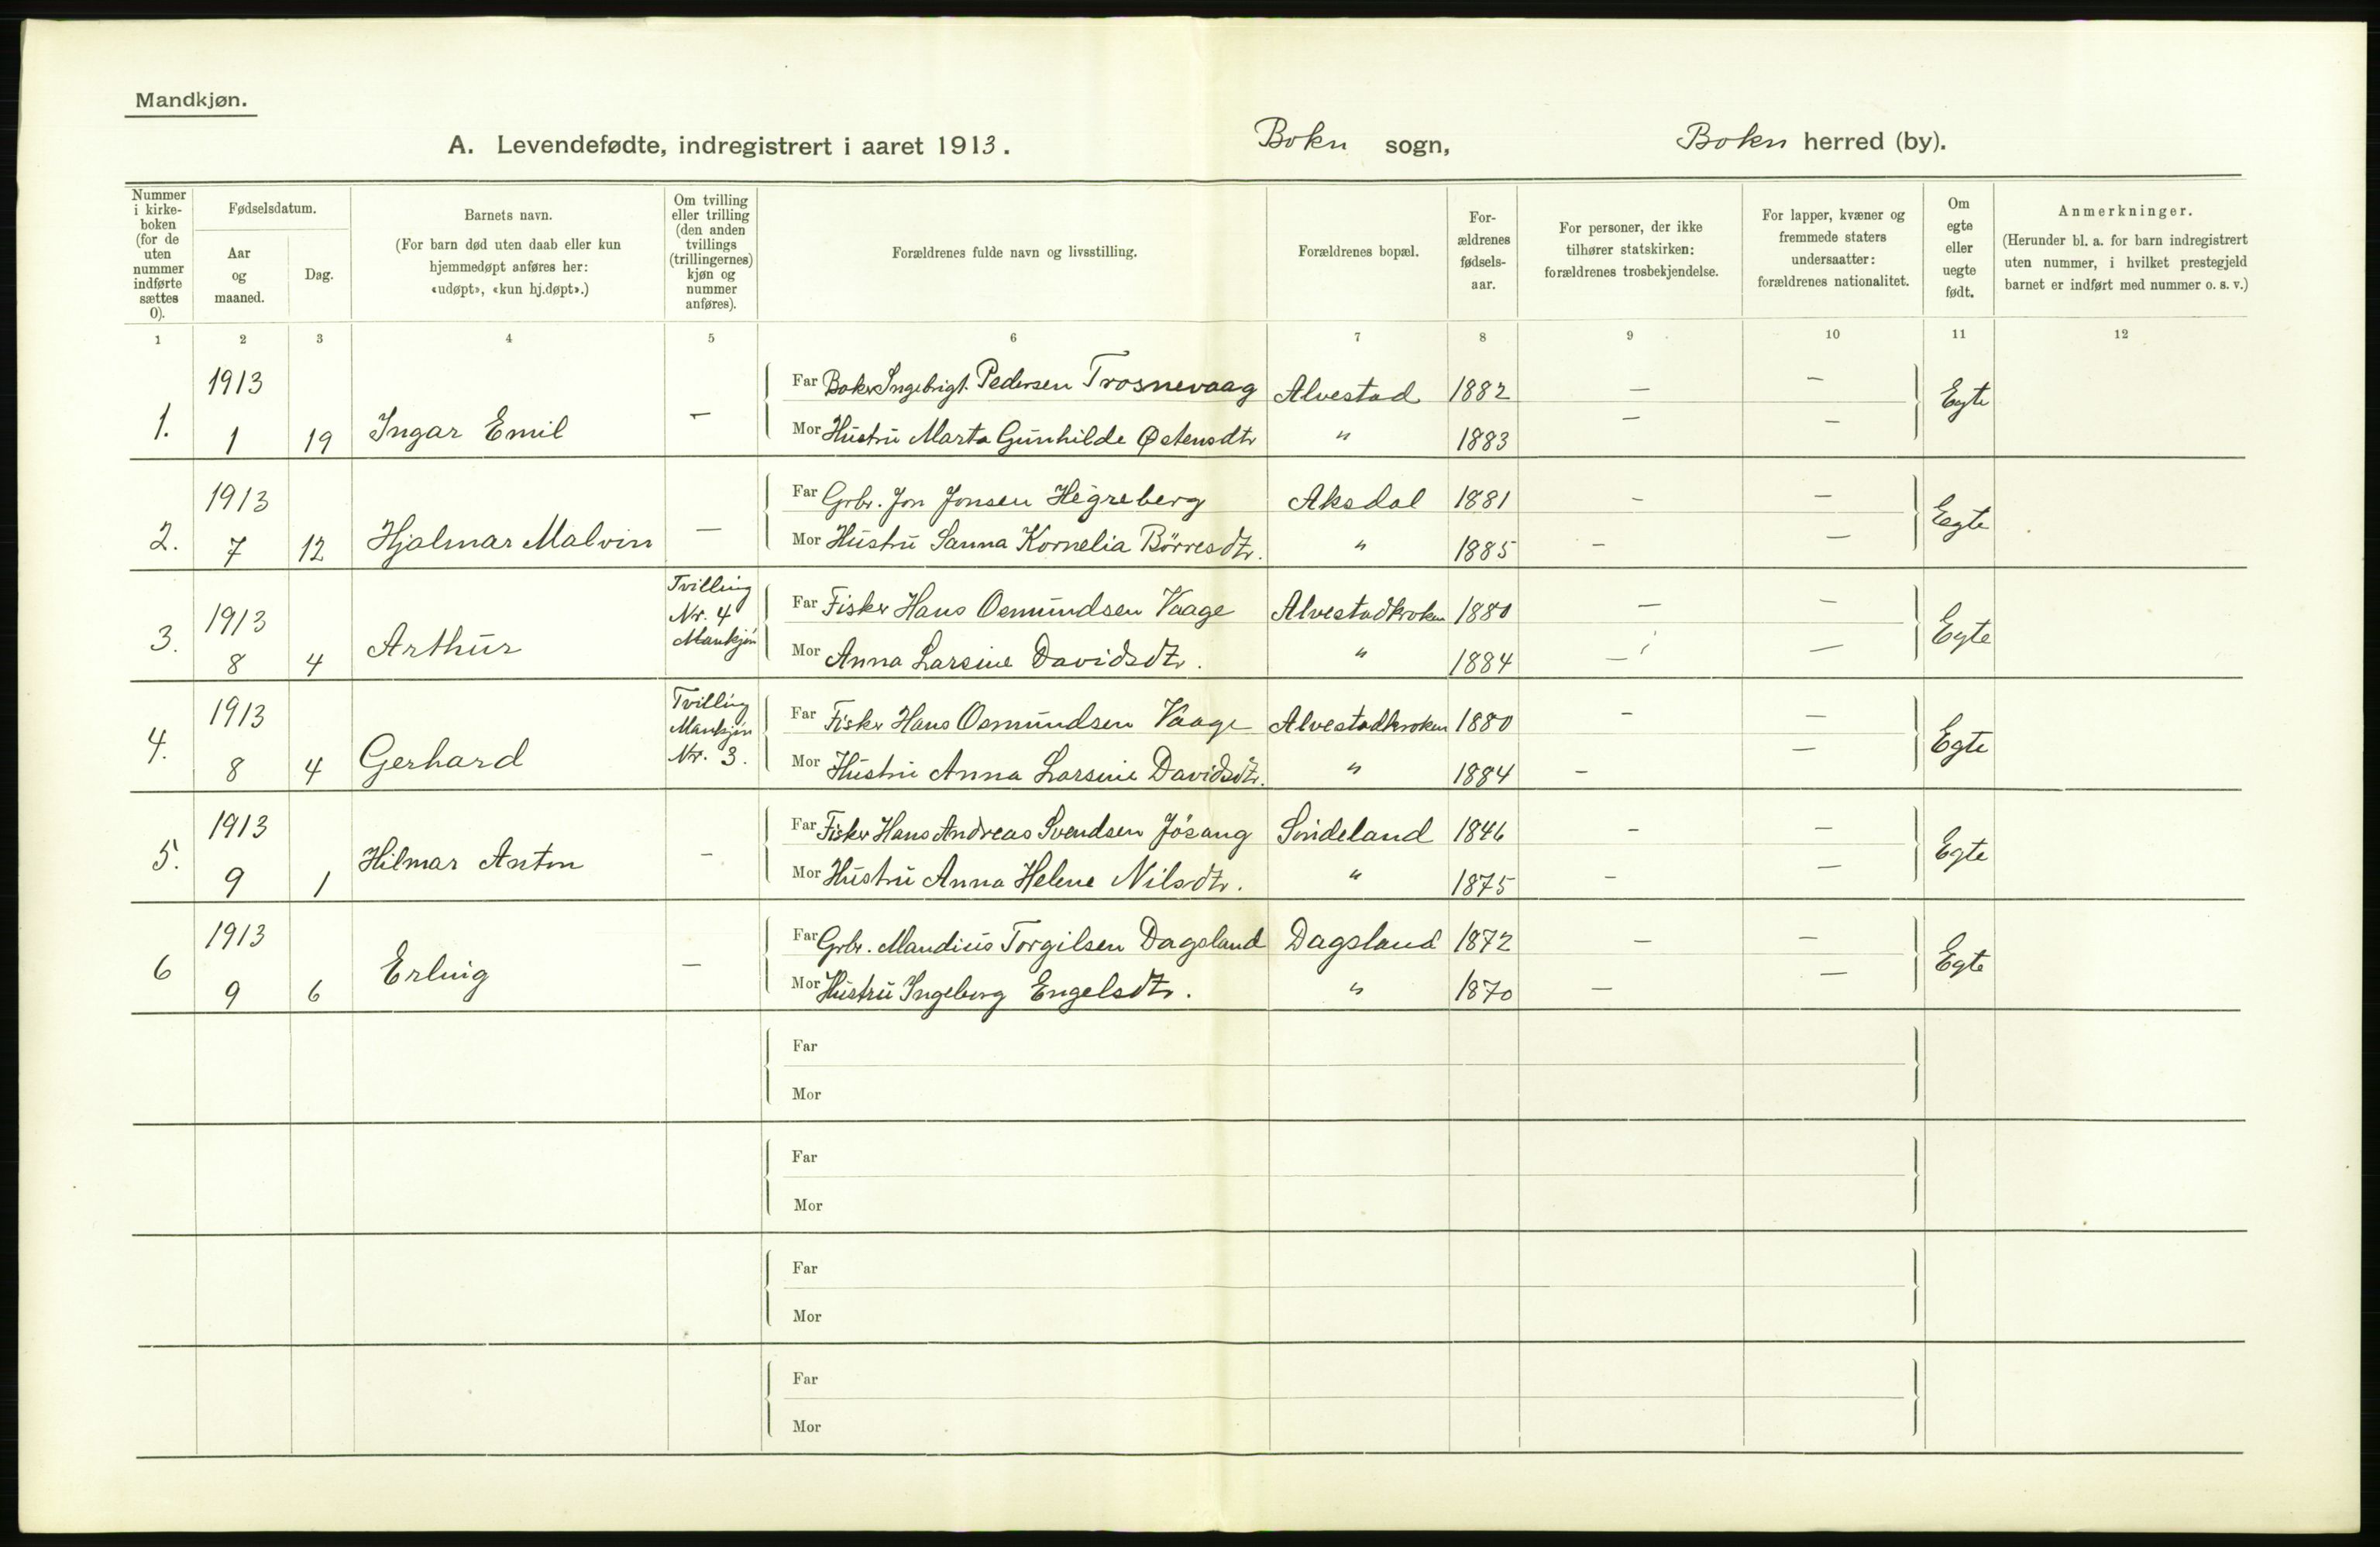 Mandkjøn.
A. Levendefødte, indregistrert i aaret 1913. Bokn sogn, Bokn herred (by).
Nummer i kirke-boken (for de uten nummer indførte sættes 0).
Fødselsdatum.
Aar og maaned.
Dag.
Barnets navn.
(For barn død uten daab eller kun hjemmedøpt anføres her: «udøpt», «kun hj.døpt».)
Om tvilling eller trilling (den anden tvillings (trillingernes) kjøn og nummer anføres).
Forældrenes fulde navn og livsstilling.
Forældrenes bopæl.
For-ældrenes fødsels-aar.
For personer, der ikke tilhører statskirken: forældrenes trosbekjendelse.
For lapper, kvæner og fremmede staters undersaatter: forældrenes nationalitet.
Om egte eller uegte født.
Anmerkninger.
(Herunder bl. a. for barn indregistrert uten nummer, i hvilket prestegjeld barnet er indført med nummer o. s. v.)
1 2 3 4 5 6 7 8 9 10 11 12
1. 1913 1 19 Ingar Emil —
Far Baker Ingebrigt Pedersen Trosnevaag Alvestad 1882 — — Egte
Mor Hustru Marta Gunhilde Østensdtr " 1883 — —
2. 1913 7 12 Hjalmar Malvin —
Far Grbr. Jon Jonsen Hegreberg Aksdal 1881 — — Eegte
Mor Hustru Sanna Kornelia Børresdtr. " 1885 — —
3. 1913 8 4 Arthur Tvilling Nr. 4 Mankjøn
Far Fisker Hans Osmundsen Vaage Alvestadkroken 1880 — — Egte
Mor Anna Larsine Davidsdtr. " 1884 — —
4. 1913 8 4 Gerhard Tvilling Mankjøn Nr. 3.
Far Fisker Hans Osmundsen Vaage Alvestadkroken 1880 — — Egte
Mor Hustru Anna Larsine Davidsdtr. " 1884 — —
5. 1913 9 1 Hilmar Anton —
Far Fisker Hans Andreas Svendsen Jøsang Sündeland 1846 — — Egte
Mor Hustru Anna Helene Nilsdtr. " 1875 — —
6 1913 9 6 Erling —
Far Grbr. Mandius Torgilsen Dagsland Dagsland 1872 — — Egte
Mor Hustru Ingeborg Engelsdtr. " 1870 — —
Far
Mor
Far
Mor
Far
Mor
Far
Mor